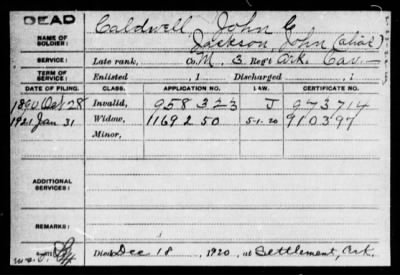 DEAD
NAME OF SOLDIER: Caldwell, John C.
Jackson, John (alias)
SERVICE: Late rank, Co. M, 3 Reg't Ark. Cav.
TERM OF SERVICE: Enlisted , 1 Discharged , 1
DATE OF FILING. CLASS. APPLICATION NO. LAW. CERTIFICATE NO.
1890 Oct 28 Invalid, 958323 J 973714
1921 Jan 31 Widow, 1169250 5-1-20 910397
Minor,
ADDITIONAL SERVICES:
REMARKS:
Died Dec 18, 1920, at Settlement, Ark.